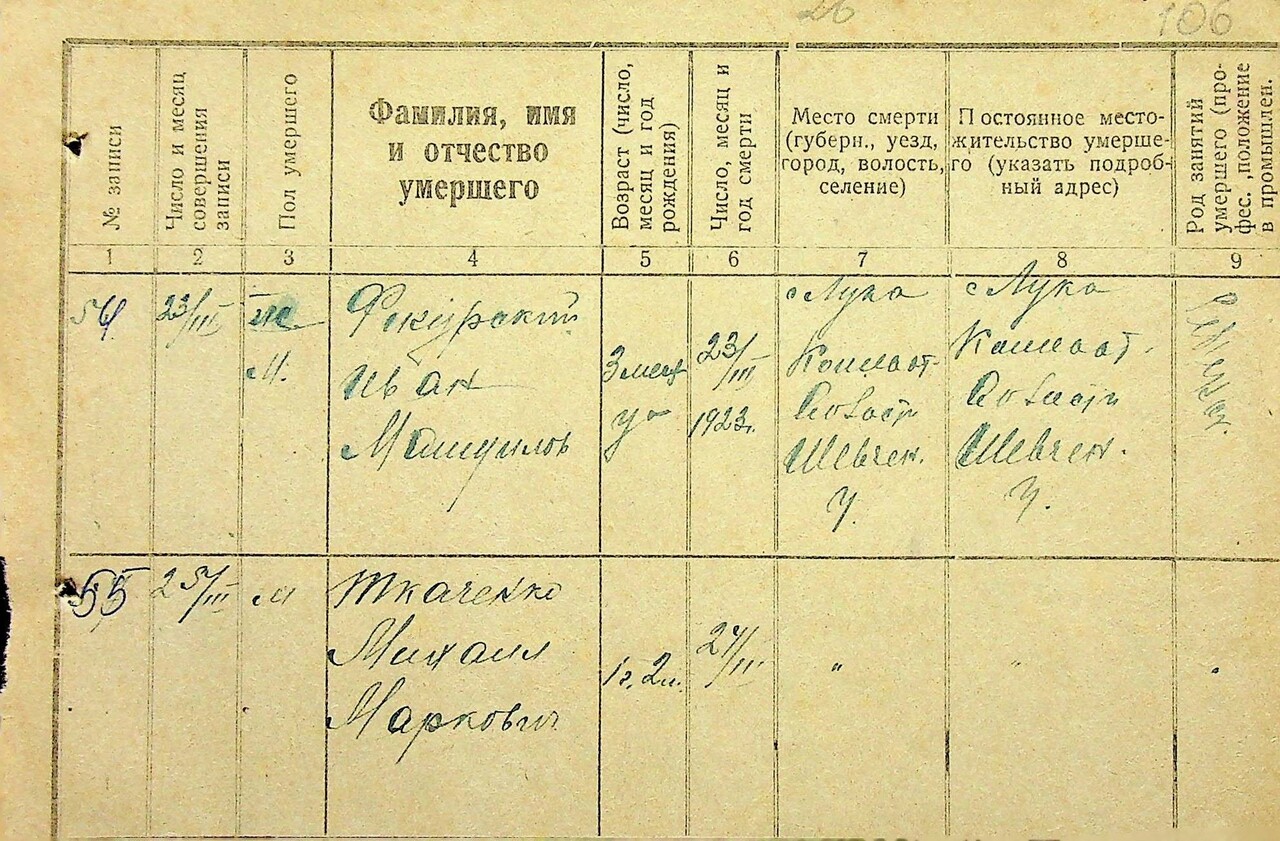 26
106
№ записи
Число и месяц
совершения
записи
Пол умершего
Фамилия, имя
и отчество
умершего
Возраст (число,
месяц и год
рождения)
Число, месяц и
год смерти
Место смерти
(губерн., уезд,
город, волость,
селение)
Постоянное место-
жительство умерше-
го (указать подроб-
ный адрес)
Род занятий
умершего (про-
фес., положение
в промышлен.
1
2
3
4
5
6
7
8
9
54
23/III
М.
Иван
3
23/III
1923г.
с Лука
Шевчен.
у.
с Лука
Шевчен.
у.
55
25/III
М
Ткаченко
Михаил
Маркович
1г. 2м.
24/III
"
"
"